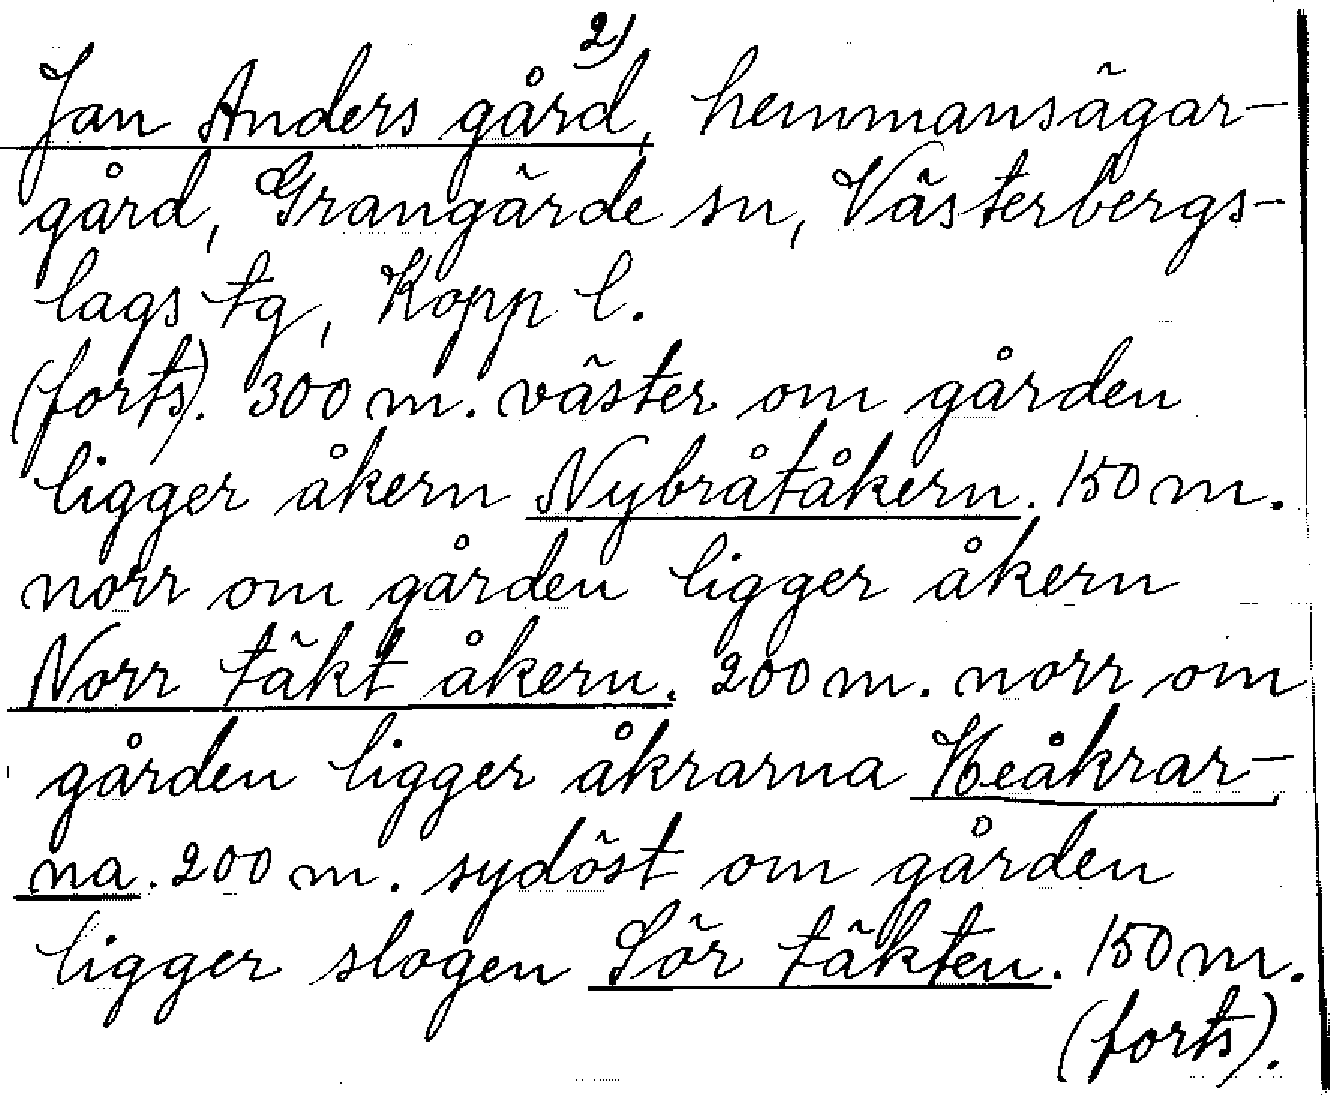 2)
Jan Anders gård, hemmansägar-
gård, Grangärde sn, Västerbergs-
lags tg, Kopp l.
(forts). 300 m. väster om gården
ligger åkern Nybråtåkern. 150 m.
norr om gården ligger åkern
Norr täkt åkern. 200 m. norr om
gården ligger åkrarna Heåkrar-
na. 200 m. sydöst om gården
ligger slogen Sör täkten. 150 m.
(forts).